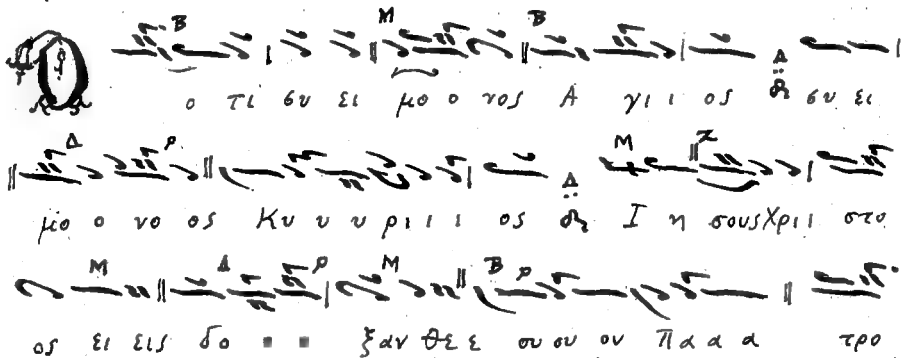 Ο ο τι συ ει μο ο νος Α γι ι ος συ ει
μο ο νο ος Κυ υ υ ρι ι ι ος Ι η σους Χρι ι στο
ος ει εις δο ξαν θε ε ου ου ον Πα α α τρο